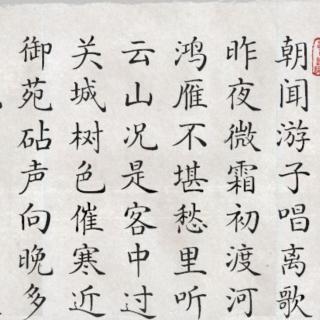 朝闻游子唱离歌
昨夜微霜初渡河
鸿雁不堪愁里听
云山况是客中过
关城树色催寒近
御苑砧声向晚多